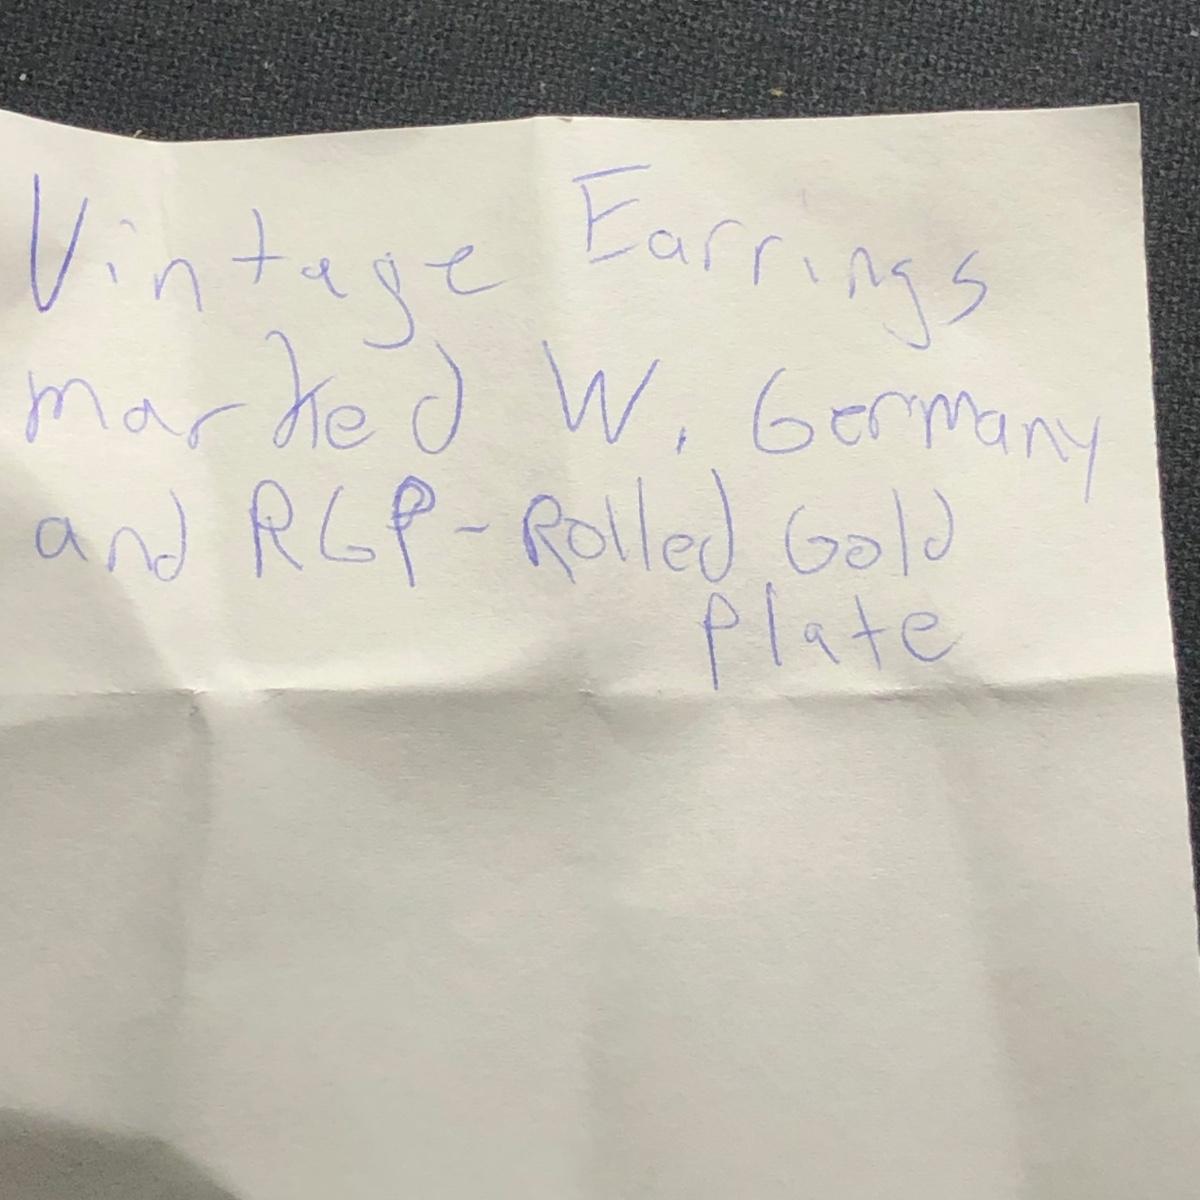 Vintage Earrings
marked W. Germany
and RGP-Rolled Gold
Plate